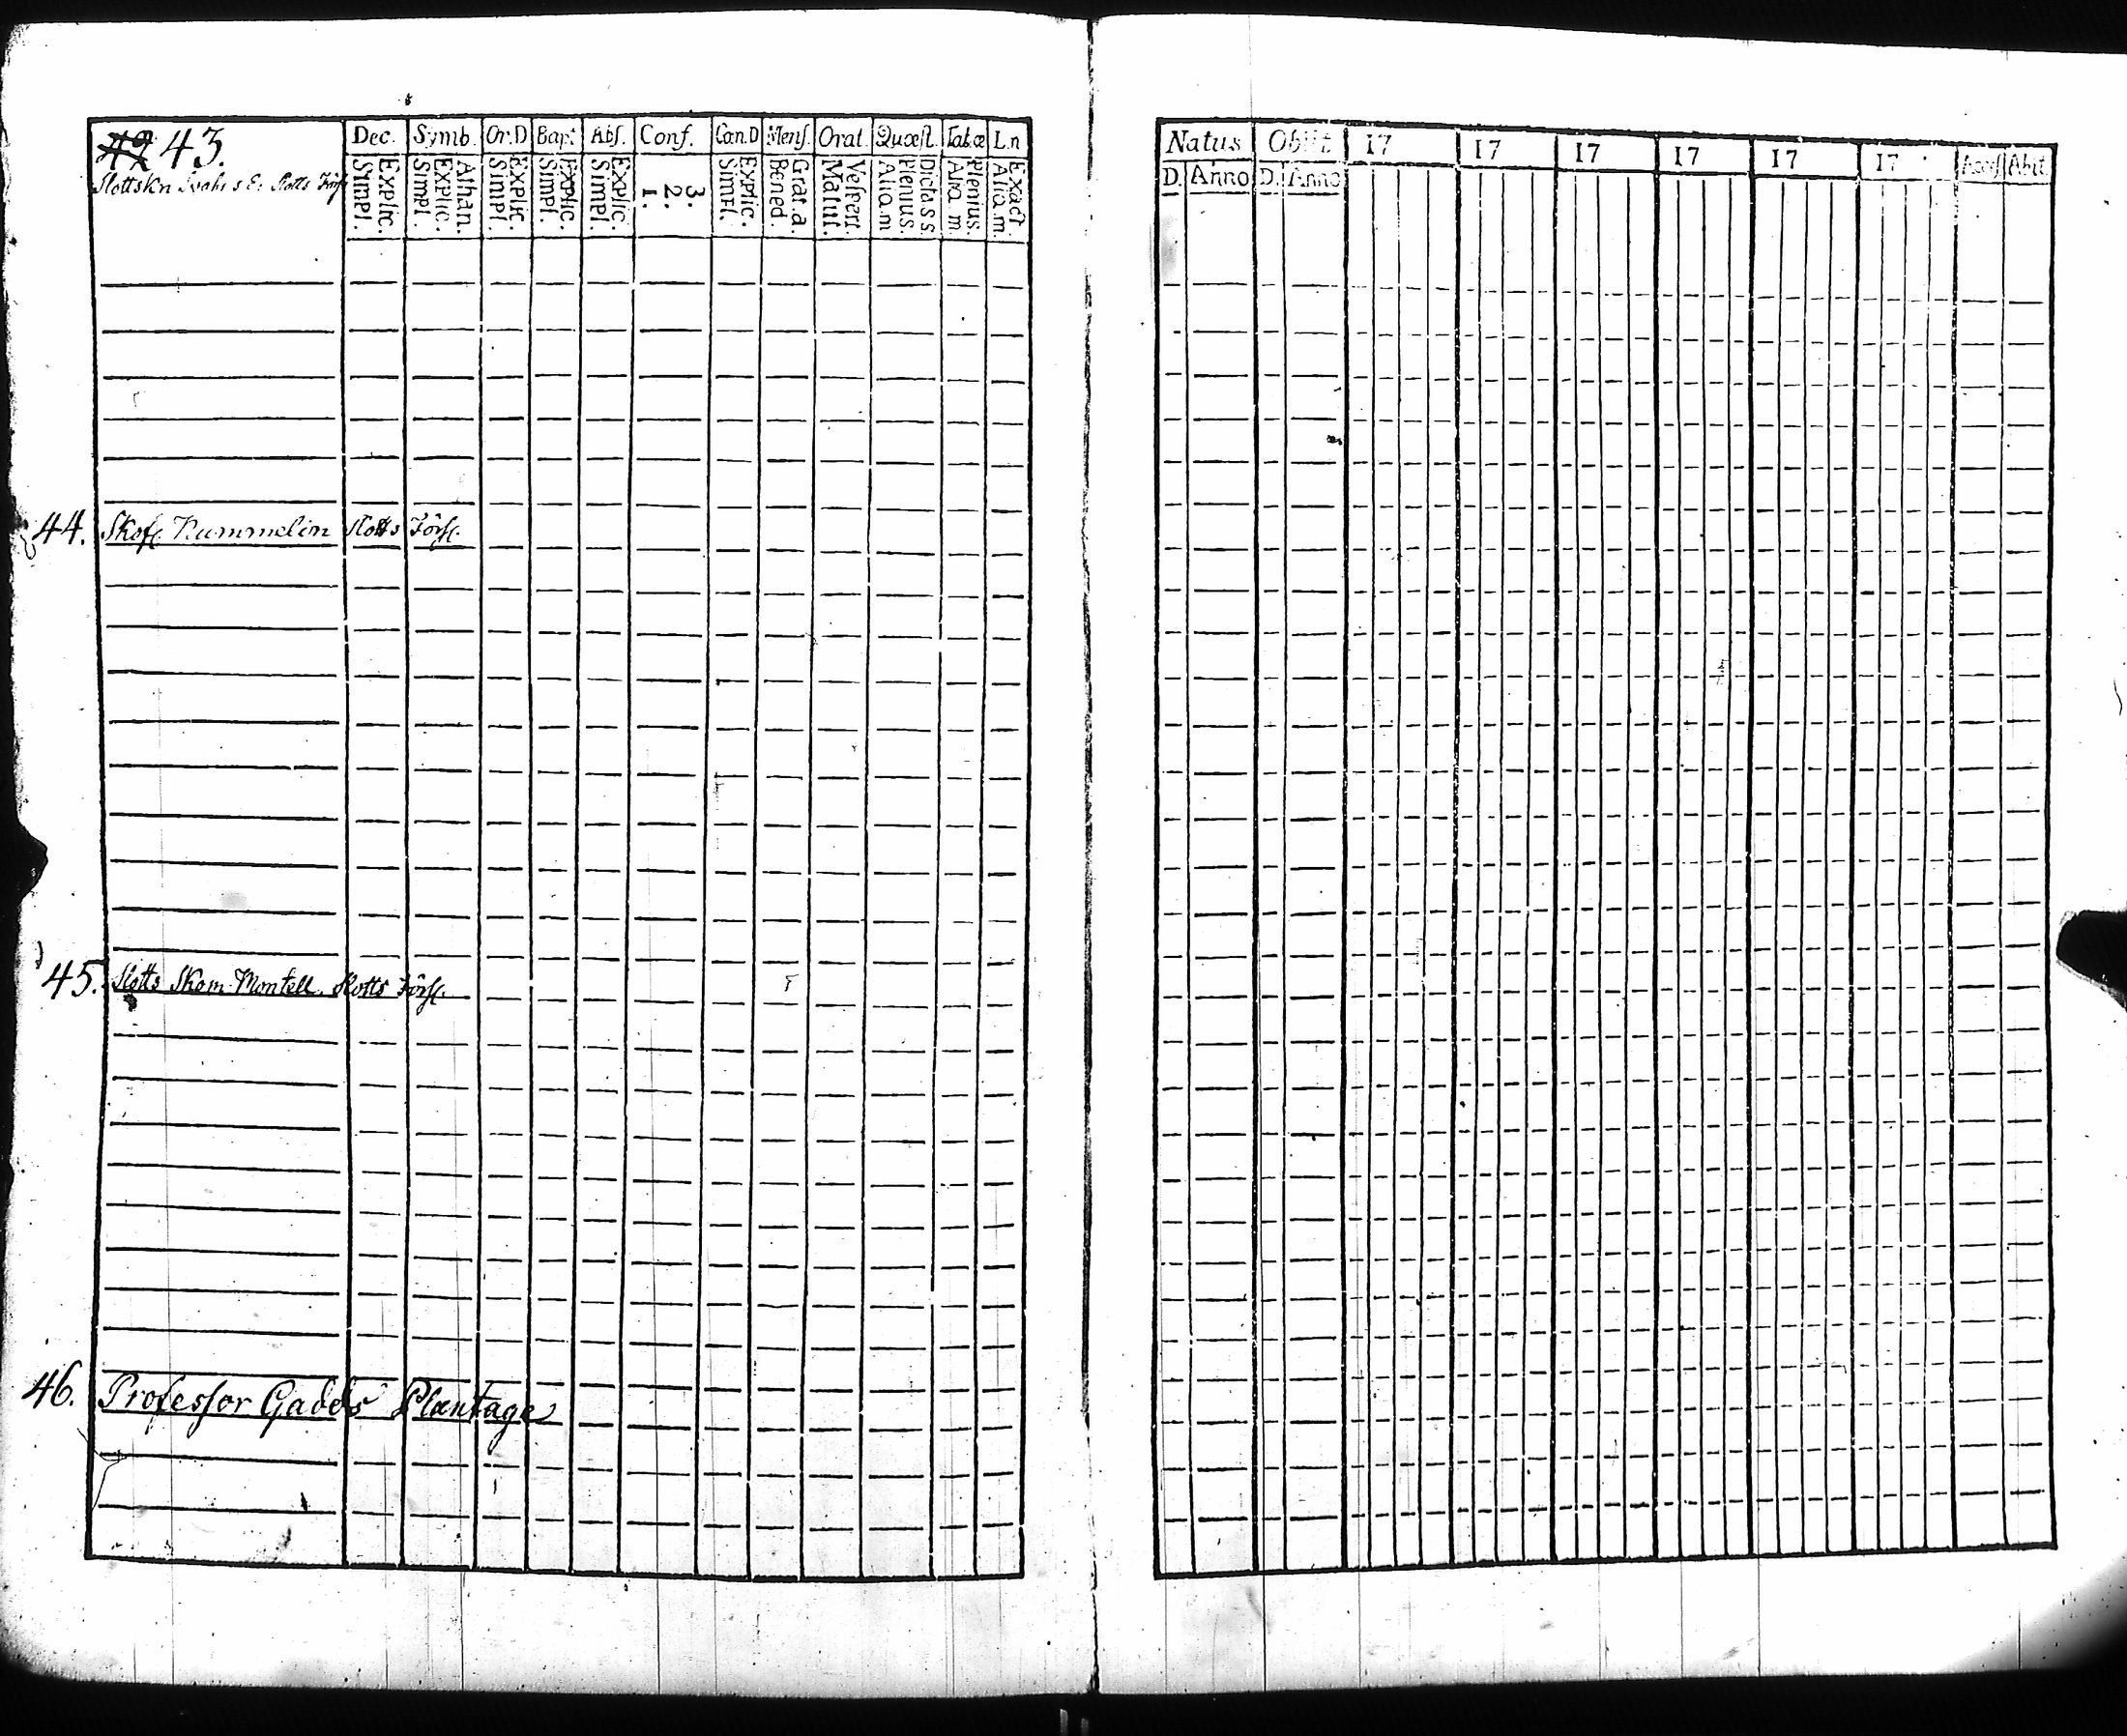 42 43.
Dec. Symb. Or.D Bapt Abs. Conf. Can.D Mens. Orat. Quæst. Tab.æ L.n
Explic. Simpl. Athan. Explic. Simpl. Explic. Simpl. Explic. Simpl. Explic. Simpl. 3. 2. 1. Explic. Simpl. Grat.a. Bened. Vespert. Matut. Dicta s s. Plenius. Aliq.m Plenius. Aliq m Exact Aliq.m.
Slotts Förs
44. Skof. Kummelin Slotts Förs.
45. Slotts Skom. Montell. Slotts Förs.
46. Professor Gadds Plantage
Natus Obiit 17 17 17 17 17 17 Access Abit.
D. Anno D. Anno